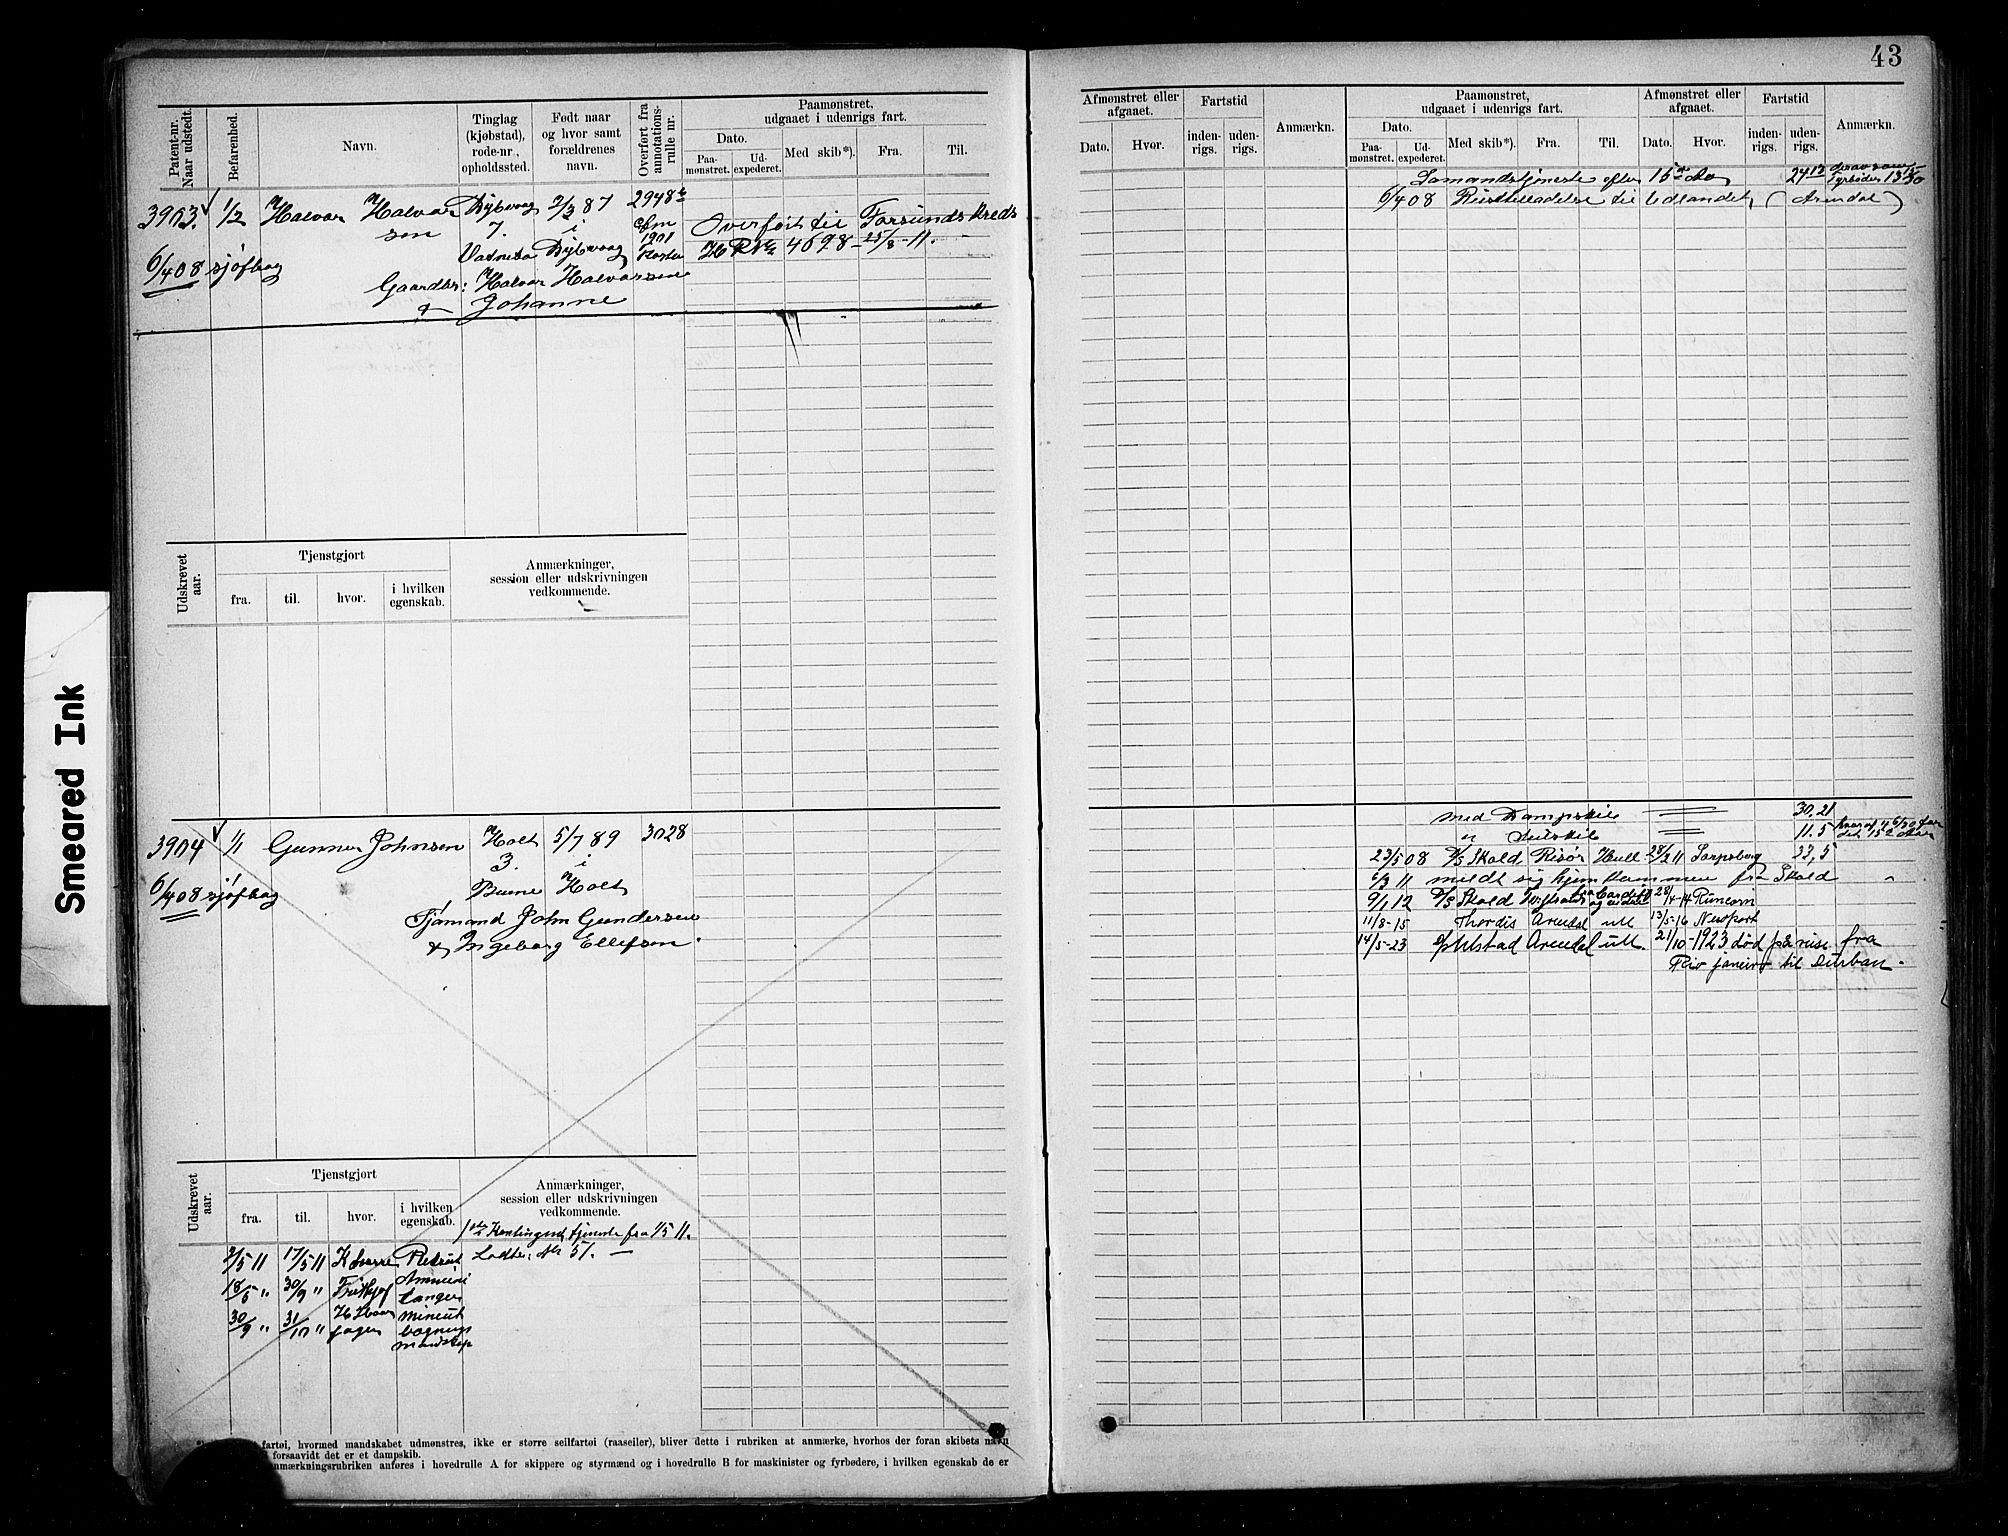 43
Patent-nr.
Naar udstedt.
Befarenhed.
Navn.
Tinglag
(kjøbstad),
rode-nr.,
opholdssted.
Født naar
og hvor samt
forældrenes
navn.
Overført fra
annotations-
rulle nr.
Paamønstret,
udgaaet i udenrigs fart.
Dato.
Paa-
mønstret.
Ud-
expederet.
Med skib*).
Fra.
Til.
3903. 1/2 Halvor Halvor Dybvaag 2/3 87 2948
sen 7. i 1901
6/4 08 sjøfbog Vatnebo Dybvaag
Gaardbr: Halvor Halvorsen
& Johanne
Overført til Farsunds Kreds
4698 - 25/8 - 11.
Udskrevet
aar.
Tjenstgjort
fra.
til.
hvor.
i hvilken
egenskab.
Anmærkninger,
session eller udskrivningen
vedkommende.
3904 1/1 Gunner Johnsen Holt 5/7 89 3028
3. i
6/4 08 sjøfbog Holt
Tjømand John Gundersen
& Ingeborg Ellefsen.
Udskrevet
aar.
Tjenstgjort
fra.
til.
hvor.
i hvilken
egenskab.
Anmærkninger,
session eller udskrivningen
vedkommende.
tjeneste fra 1/5 11.
2/5 11 17/5 11 Rekrut Lodtr. Nr 51. —
18/5 " 30/9 " Frithjof
langer
30/9 " 31/10 "
mandskap
fartøi, hvormed mandskabet udmønstres, ikke er større seilfartøi (raaseiler), bliver dette i rubriken at anmærke, hvorhos der foran skibets navn
forsaavidt det er et dampskib.
anmærkningsrubriken anføres i hovedrulle A for skippere og styrmænd og i hovedrulle B for maskinister og fyrbødere, i hvilken egenskab de er
Afmønstret eller
afgaaet.
Dato.
Hvor.
Fartstid
inden-
rigs.
uden-
rigs.
Anmærkn.
Paamønstret,
udgaaet i udenrigs fart.
Dato.
Paa-
mønstret.
Ud-
expederet.
Med skib*).
Fra.
Til.
Afmønstret eller
afgaaet.
Dato.
Hvor.
Fartstid
inden-
rigs.
uden-
rigs.
Anmærkn.
Sømandstjeneste efter 15de Aar
6/4 08 Reisetilladelse til Udlandet (Arendal)
med Dampskib 30,21
" Seilskib 11.5
23/5 08 D/S Skald Risør Hull 28/2 11 Sarpsborg 33,5
6/3 11 meldt sig hjemkommen fra Skald
9/1 12 D/S Skald 28/4-14 Runcorn
11/8-15 Thordis Arendal utl 13/5-16 Newport
14/5-23 Arendal utl. 21/10-1923 død på reise fra
Rio janeiro til Durban.
Smeared Ink